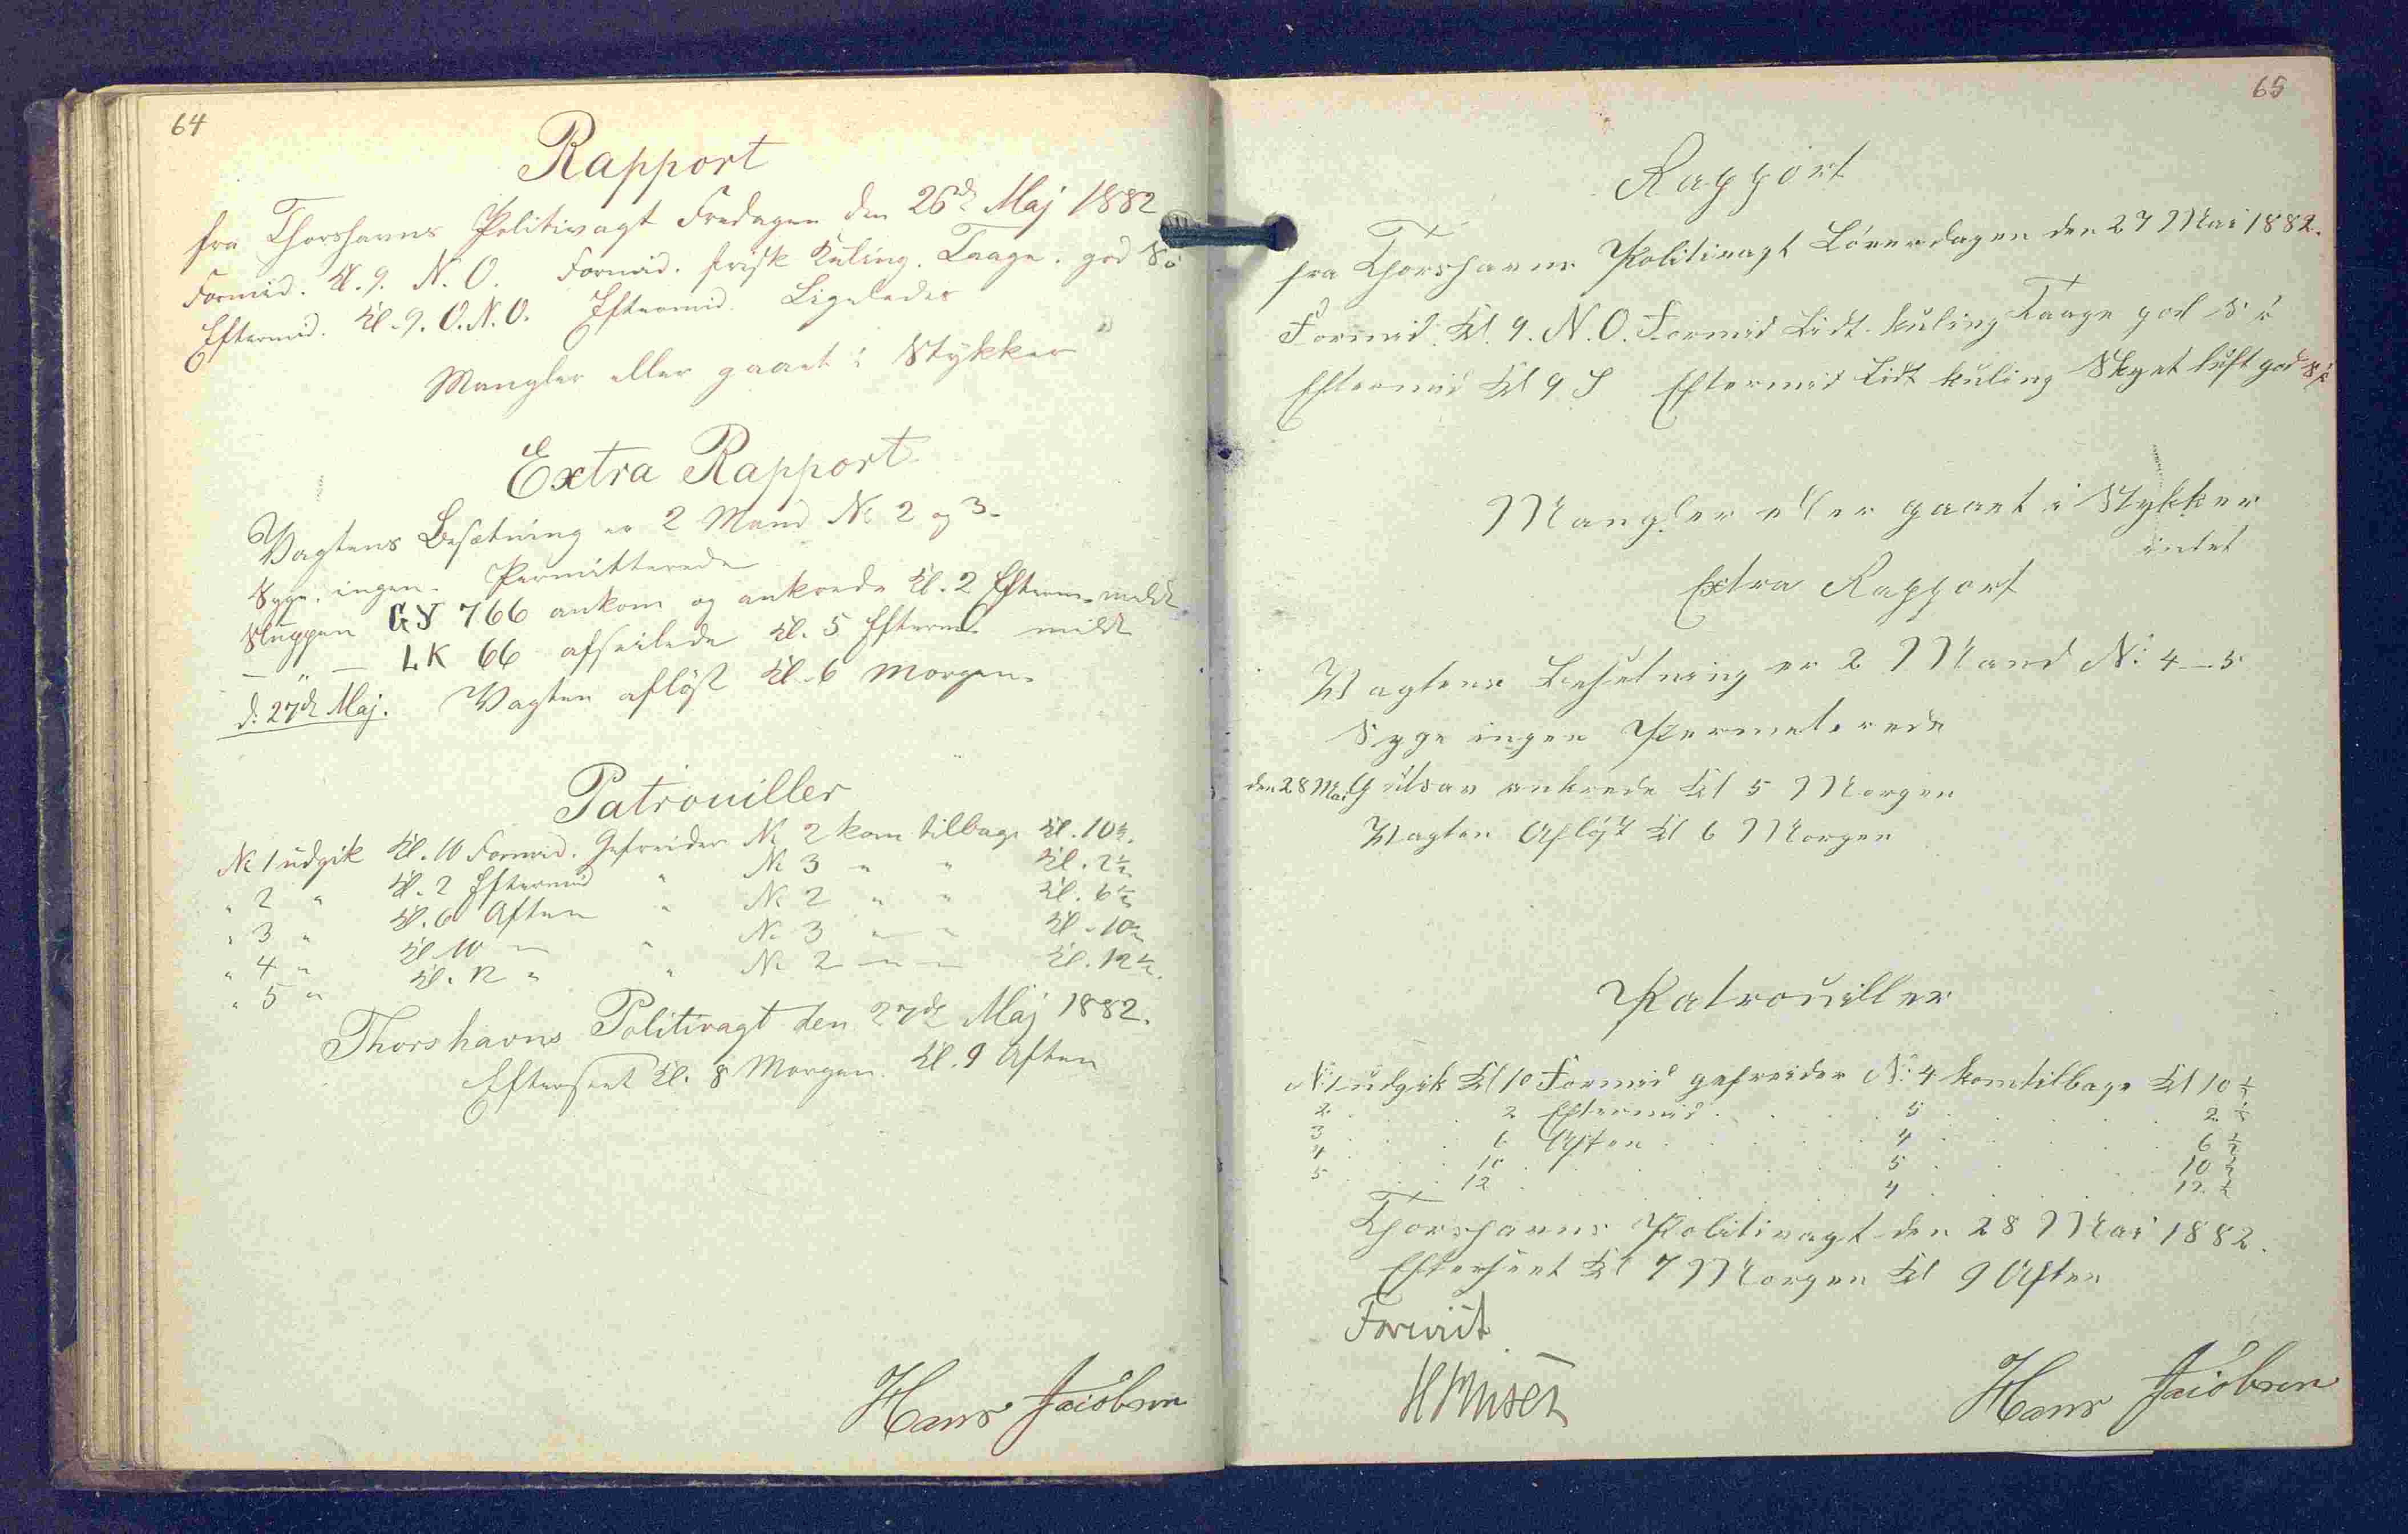 64
Rapport
fra Thorshavns Politivagt Fredagen den 26de Maj 1882
Formid. Kl. 9. N. O. Formid. frisk Kuling. Taage. god Sö
Eftermid. Kl. 9. O.N.O. Eftermid. Ligeledes
Mangler eller gaaet i Stykker "
Extra Rapport
Vagtens Besætning er 2 Mand No 2 og 3.
Syge. ingen. Permitterede
Sluppen GY 766 ankom og ankrede Kl. 2 Efterm.
— " — LK 66 afseilede Kl. 5 Efterm.
d. 27de Maj. Vagten aflöst Kl. 6 Morgen.
Patrouiller
No 1 udgik Kl. 10 Formid. Gefreider No 2 kom tilbage Kl. 10½.
" 2 " Kl. 2 Eftermid " No 3 " " Kl. 2½
" 3 " Kl. 6 Aften " No 2 " " Kl. 6½
" 4 " Kl. 10 — " No 3 — " Kl. 10½
" 5 " Kl. 12 " " No 2 — — Kl. 12½.
Thorshavns Politivagt den 27de Maj 1882.
Efterseet Kl. 8 Morgen. Kl. 9 Aften
Hans Jacobsen
65
Rapport
fra Thorshavns Politivagt Löverdagen den 27 Mai 1882.
Formid. Kl. 9. N. O. Formid Lidt kuling Taage god Sö
Eftermid Kl 9 S Eftermid Lidt kuling Skyet luft god Sö
Mangler eller gaaet i Stykker
intet
Extra Rapport
Vagtens Besetning er 2 Mand No: 4 — 5
Syge ingen Permeterede
den 28 Mai ankrede Kl 5 Morgen
Vagten Aflöst Kl 6 Morgen
Patrouiller
No: 1 udgik Kl 10 Formid gefreider No: 4 kom tilbage Kl 10 ½
2 . . . 2 Eftermid . . . 5 . . . 2 ½
3 . . . 6 Aften . . . 4 . . . 6 ½
4 . . . 10 . . . 5 . . . 10 ½
5 . . . 12 . . . 4 . . . 12 ½
Thorshavns Politivagt den 28 Mai 1882.
Efterseet Kl 7 Morgen Kl 9 Aften
Forevist
Hans Jacobsen